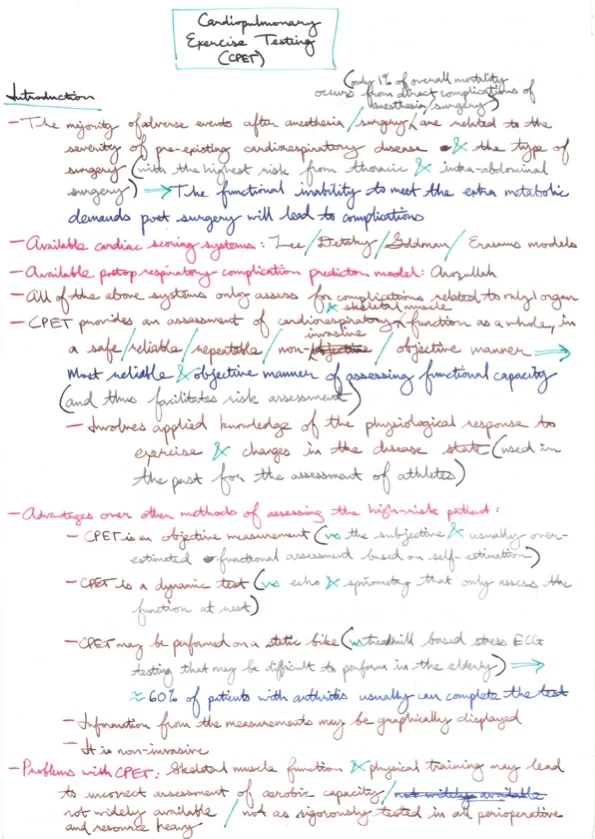 Cardiopulmonary
Exercise Testing
(CPET)
(only 1% of overall mortality
occurs from direct complications of
anesthesia/surgery)
Introduction
- The majority of adverse events after anesthesia/surgery, are related to the
severity of pre-existing cardiorespiratory disease & the type of
surgery (with the highest risk from thoracic & intra-abdominal
surgery) → The functional inability to meet the extra metabolic
demands post surgery will lead to complications
- Available cardiac scoring systems: Lee/Detsky/Goldman/Erasmus models
- Available postop respiratory-complication prediction model: Arozullah
- All of the above systems only assess for complications related to only 1 organ
& skeletal muscle
- CPET provides an assessment of cardiorespiratory function as a whole, in
invasive
a safe/reliable/repeatable/non-objective/objective manner →
Most reliable & objective manner of assessing functional capacity
(and thus facilitates risk assessment)
- Involves applied knowledge of the physiological response to
exercise & changes in the disease state (used in
the past for the assessment of athletes)
- Advantages over other methods of assessing the high-risk patient:
- CPET is an objective measurement (vs the subjective & usually over-
estimated functional assessment based on self-estimation)
- CPET is a dynamic test (vs echo & spirometry that only assess the
function at rest)
- CPET may be performed on a static bike (vs treadmill based stress ECG
testing that may be difficult to perform in the elderly) →
≈ 60% of patients with arthritis usually can complete the test
- Information from the measurements may be graphically displayed
- It is non-invasive
- Problems with CPET: Skeletal muscle function & physical training may lead
to incorrect assessment of aerobic capacity/not widely available
not widely available / not as rigorously tested in all perioperative
and resource heavy